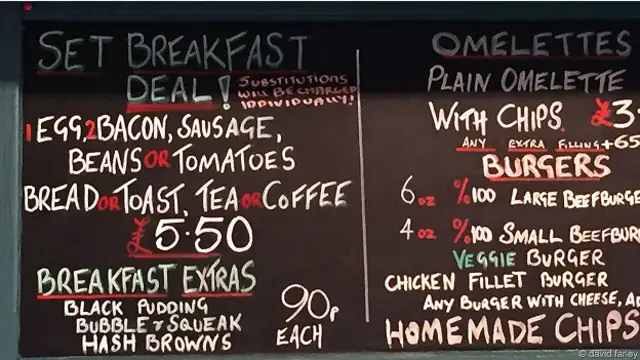 SET BREAKFAST
DEAL!
SUBSTITUTIONS
WILL BE CHARGED
INDIVIDUALLY!
1 EGG, 2 BACON, SAUSAGE,
BEANS OR TOMATOES
BREAD OR TOAST, TEA OR COFFEE
£5·50
BREAKFAST EXTRAS
BLACK PUDDING
BUBBLE & SQUEAK
HASH BROWNS
90p
EACH
OMELETTES
PLAIN OMELETTE
WITH CHIPS. £3
ANY EXTRA FILLING +65
BURGERS
6 oz %100 LARGE BEEFBURGE
4 oz %100 SMALL BEEFBUR
VEGGIE BURGER
CHICKEN FILLET BURGER
ANY BURGER WITH CHEESE, A
HOMEMADE CHIPS
© david farley